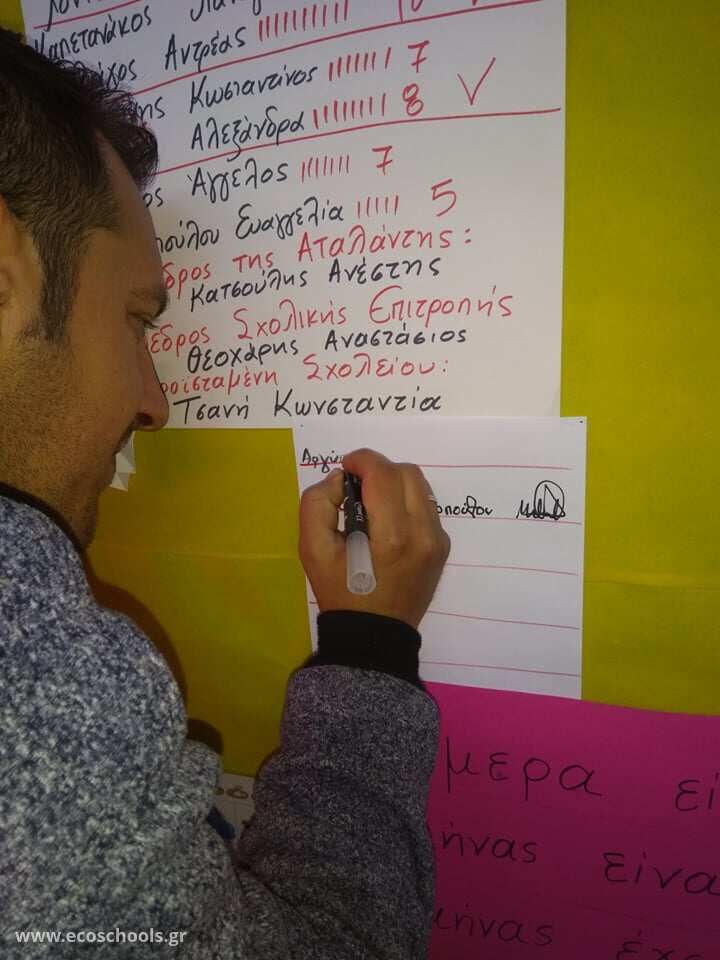 Καπετανάκος
Αντρέας ||||||||||
Κωσταντίνος ||||||| 7
Αλεξάνδρα |||||||| 8 √
ος Άγγελος ||||||| 7
πούλου Ευαγγελία ||||| 5
δρος της Αταλάντης:
Κατσούλης Ανέστης
εδρος Σχολικής Επιτροπής
Θεοχάρης Αναστάσιος
οϊσταμένη Σχολείου:
Τσανή Κωνσταντία
οπούλου
μερα εί
ήνας είνα
μήνας έχ
www.ecoschools.gr